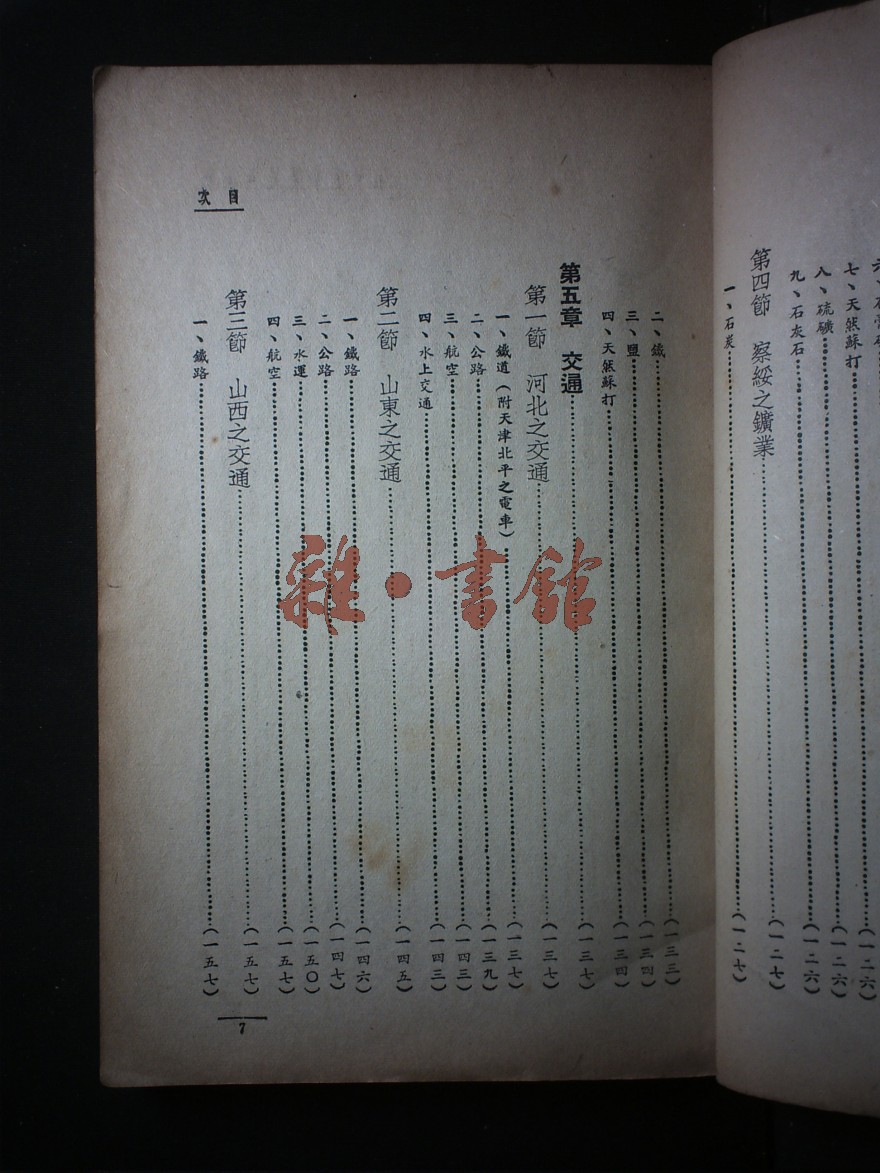 七、天然蘇打(一二六)
八、硫礦(一二六)
九、石灰石(一二六)
第四節 察綏之鑛業(一二七)
一、石炭(一二七)
目次
二、鐵(一三三)
三、鹽(一三四)
四、天然蘇打(一三四)
第五章 交通(一三七)
第一節 河北之交通(一三七)
一、鐵道(附天津北平之電車)(一三七)
二、公路(一三九)
三、航空(一四三)
四、水上交通(一四三)
第二節 山東之交通(一四五)
一、鐵路(一四六)
二、公路(一四七)
三、水運(一五〇)
四、航空(一五七)
第三節 山西之交通(一五七)
一、鐵路(一五七)
7
雜·書館